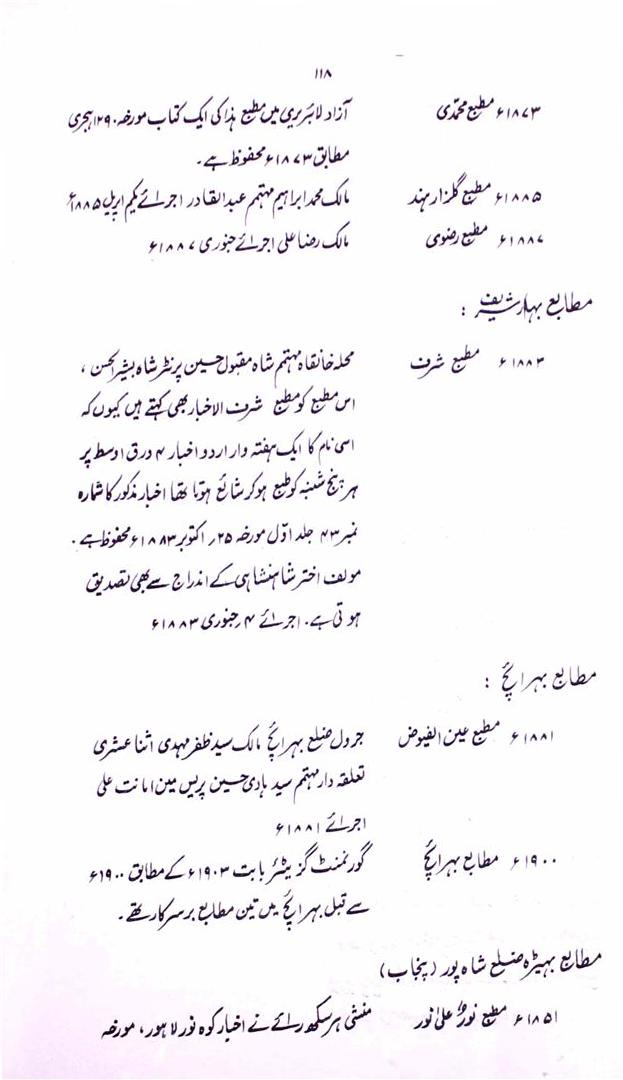 ۱۱۸
۱۸۷۳ء مطبع محمدی آزاد لائبریری میں مطبع ہذا کی ایک کتاب مورخہ ۱۲۹۰ ہجری
مطابق ۱۸۷۳ء محفوظ ہے۔
۱۸۸۵ء مطبع گلزار ہند مالک محمد ابراہیم مہتمم عبدالقادر اجرائے یکم اپریل ۱۸۸۵ء
۱۸۸۷ء مطبع رضوی مالک رضا علی اجرائے جنوری ۱۸۸۷ء
مطابع بہار شریف :
۱۸۸۳ء مطبع شرف محلہ خانقاہ مہتمم شاہ مقبول حسین پرنٹر شاہ بشیر الحسن ،
اس مطبع کو مطبع شرف الاخبار بھی کہتے ہیں کیوں کہ
اسی نام کا ایک ہفتہ وار اردو اخبار ۴ ورق اوسط پر
ہر پنج شنبہ کو طبع ہو کر شائع ہوتا تھا اخبار مذکور کا شمارہ
نمبر ۴۳ جلد اوّل مورخہ ۲۵؍ اکتوبر ۱۸۸۳ء محفوظ ہے۔
مولف اختر شاہنشاہی کے اندراج سے بھی تصدیق
ہوتی ہے۔ اجرائے ۴؍ جنوری ۱۸۸۳ء
مطابع بہرائچ :
۱۸۸۱ء مطبع عین الفیوض جرول ضلع بہرائچ مالک سید ظفر مہدی اثنا عشری
تعلقہ دار مہتمم سید ہادی حسین پریس مین امانت علی
اجرائے ۱۸۸۱ء
۱۹۰۰ء مطابع بہرائچ گورنمنٹ گزیٹیر بابت ۱۹۰۳ء کے مطابق ۱۹۰۰ء
سے قبل بہرائچ میں تین مطابع برسرکار تھے۔
مطابع بہیڑہ ضلع شاہ پور (پنجاب)
۱۸۵۱ء مطبع نورٌ علیٰ نور منشی ہرسکھ رائے نے اخبار کوہ نور لاہور، مورخہ